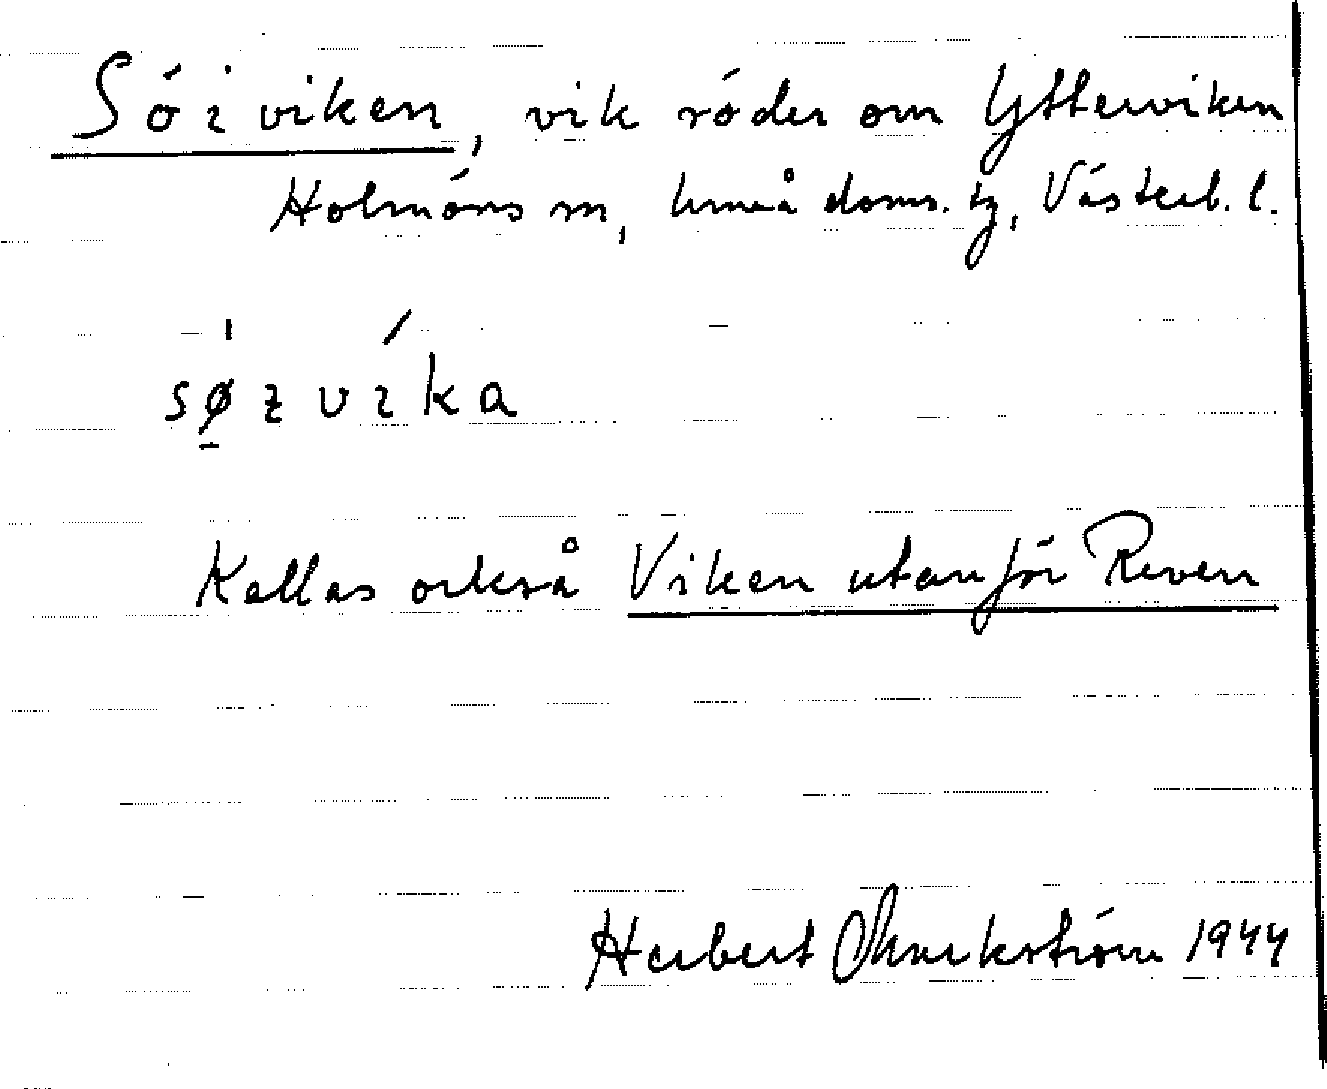 Söiviken, vik söder om Ytterviken
Holmöns sn, Umeå doms. tg, Västerb. l.
søɪvɪka
Kallas också Viken utanför Reven
Herbert 1944